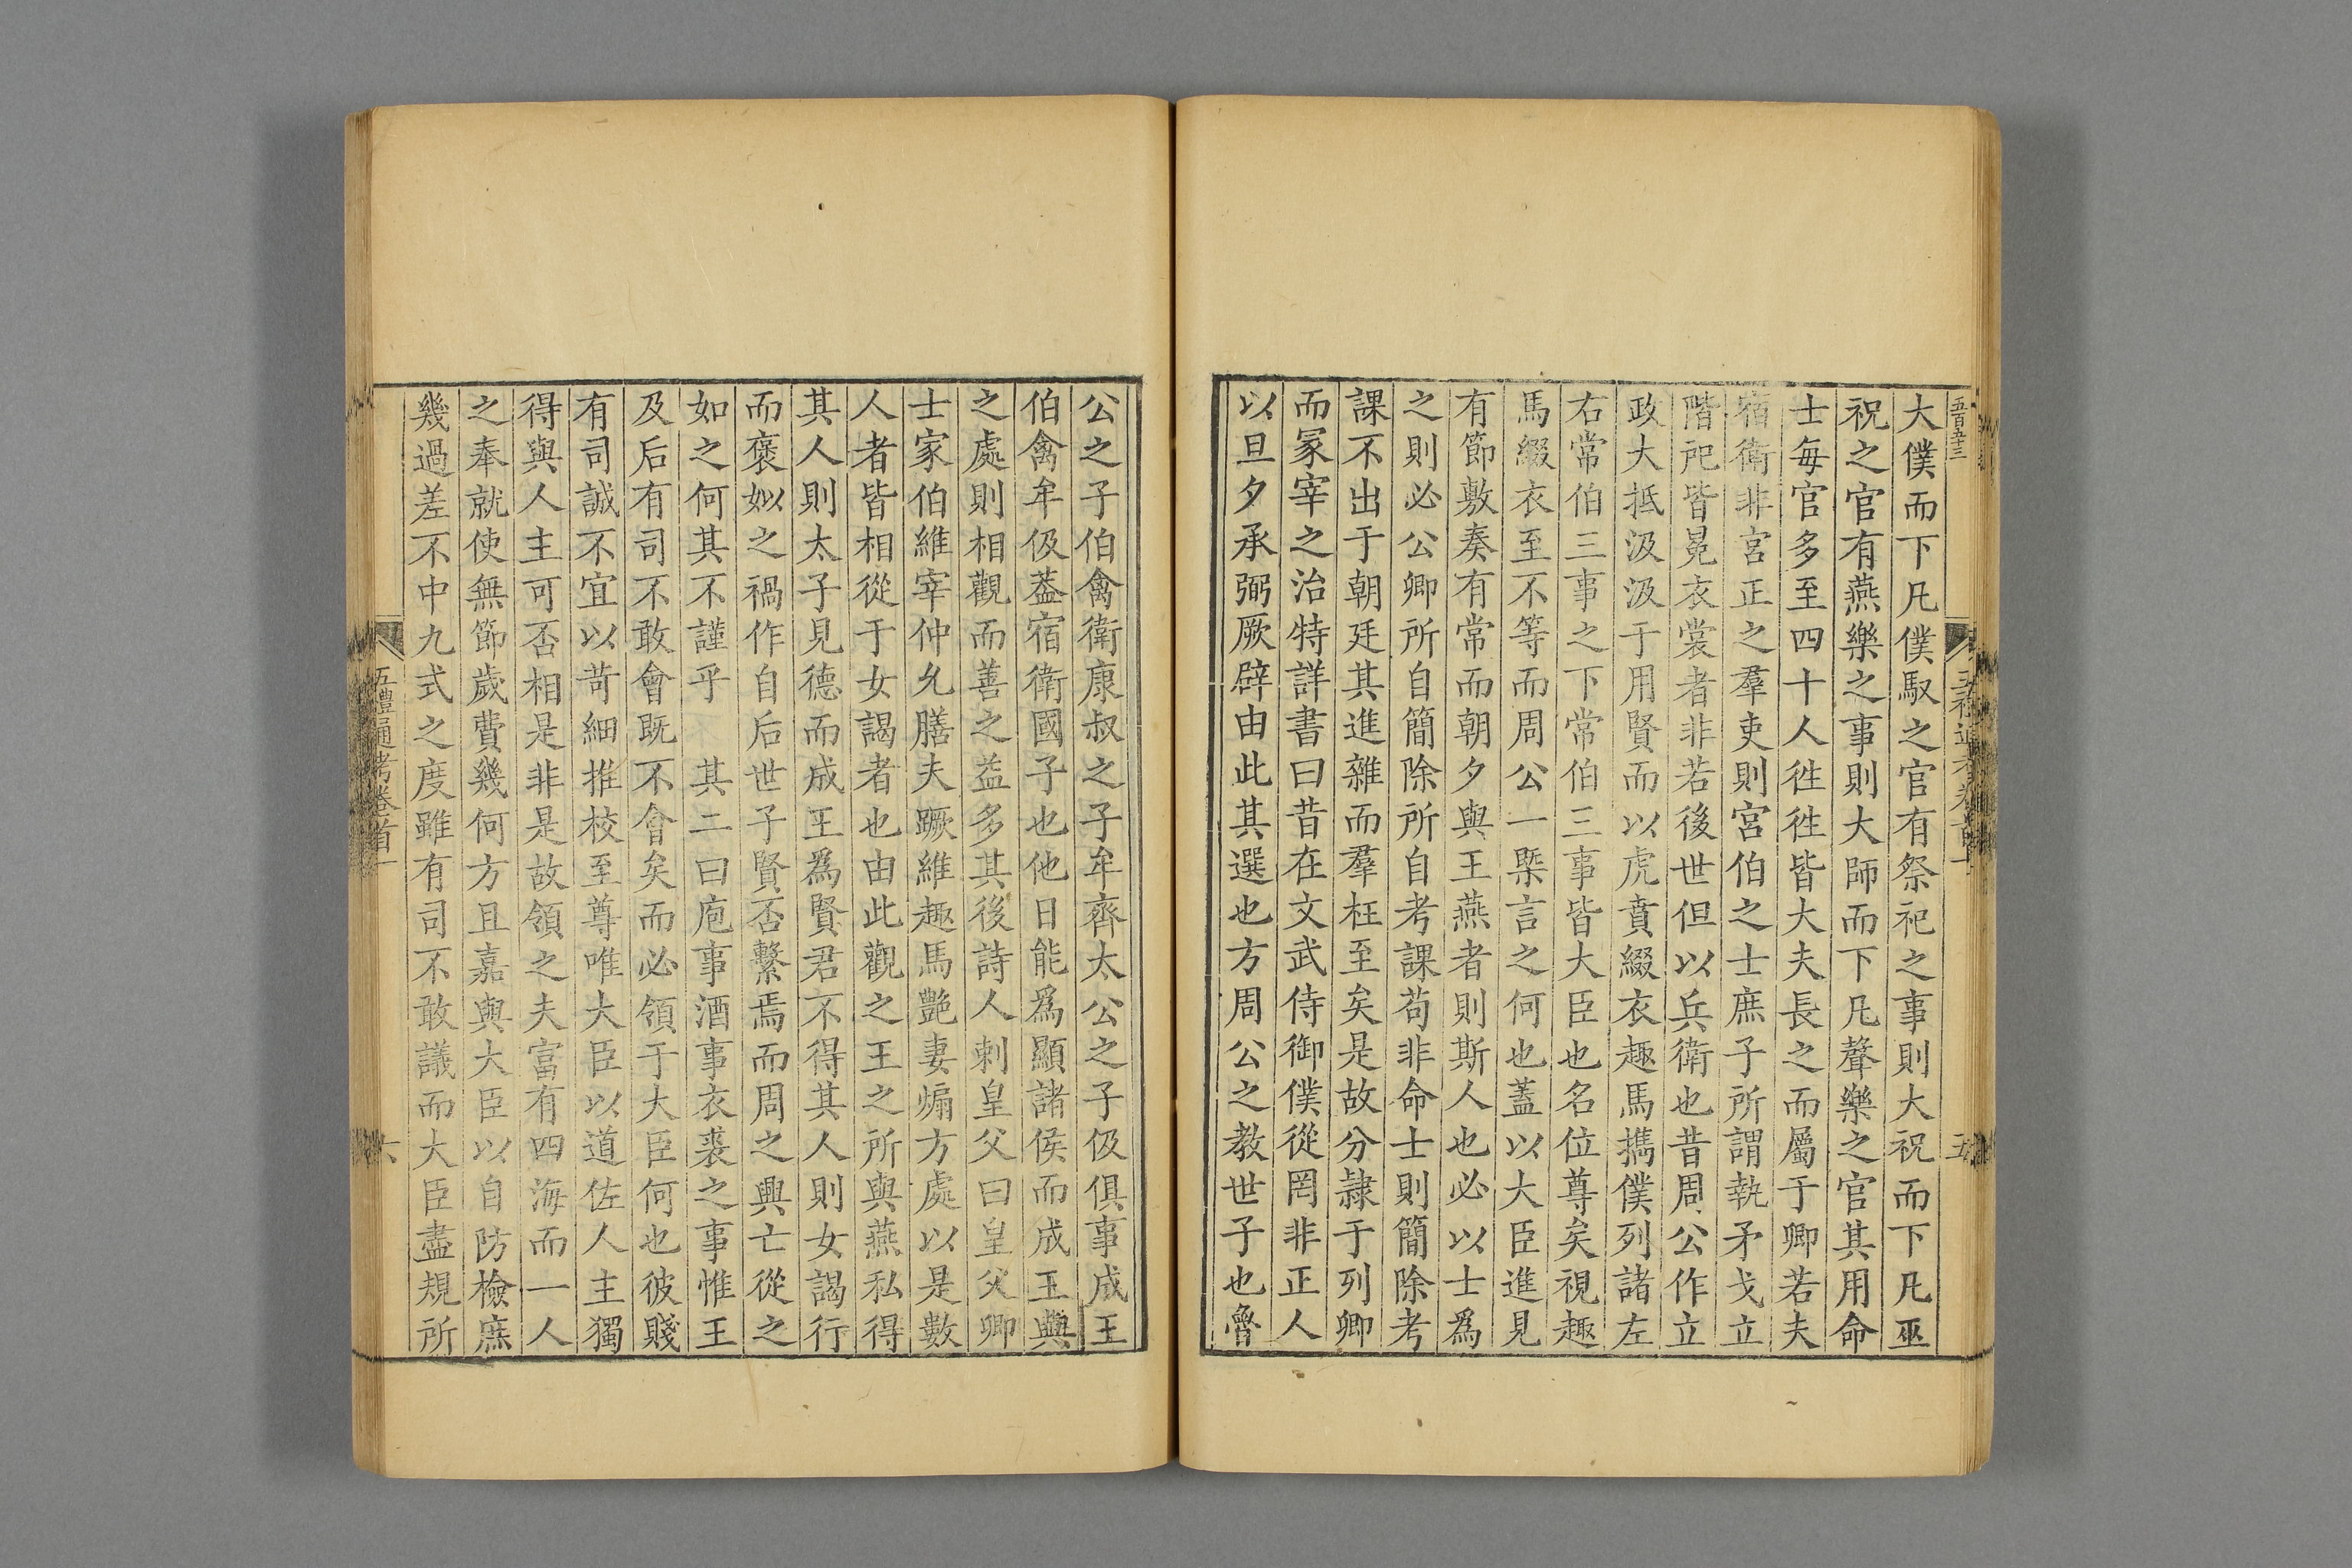 五百五十三
五
大僕而下凡僕馭之官有祭祀之事則大祝而下凡巫
祝之官有燕樂之事則大師而下凡聲樂之官其用命
士每官多至四十人徃徃皆大夫長之而屬于卿若夫
宿衛非宮正之羣吏則宮伯之士庶子所謂執矛戈立
階戺皆冕衣裳者非若後世但以兵衛也昔周公作立
政大抵汲汲于用賢而以虎賁綴衣趣馬攜僕列諸左
右常伯三事之下常伯三事皆大臣也名位尊矣視趣
馬綴衣至不等而周公一槩言之何也蓋以大臣進見
有節敷奏有常而朝夕與王燕者則斯人也必以士爲
之則必公卿所自簡除所自考課苟非命士則簡除考
課不出于朝廷其進雜而羣枉至矣是故分隷于列卿
而冢宰之治特詳書曰昔在文武侍御僕從罔非正人
以旦夕承弼厥辟由此其選也方周公之教世子也魯
公之子伯禽衛康叔之子牟齊太公之子伋俱事成王
伯禽牟伋葢宿衛國子也他日能爲顯諸侯而成王與
之處則相觀而善之益多其後詩人刺皇父曰皇父卿
士家伯維宰仲允膳夫蹶維趣馬艷妻煽方處以是數
人者皆相從于女謁者也由此觀之王之所與燕私得
其人則太子見德而成王爲賢君不得其人則女謁行
而褒姒之禍作自后世子賢否繫焉而周之興亡從之
如之何其不謹乎　其二曰庖事酒事衣裘之事惟王
及后有司不敢會既不會矣而必領于大臣何也彼賤
有司誠不宜以苛細推校至尊唯大臣以道佐人主獨
得與人主可否相是非是故領之夫富有四海而一人
之奉就使無節歲費幾何方且嘉與大臣以自防檢庶
幾過差不中九式之度雖有司不敢議而大臣盡規所
五禮通考卷首一
六